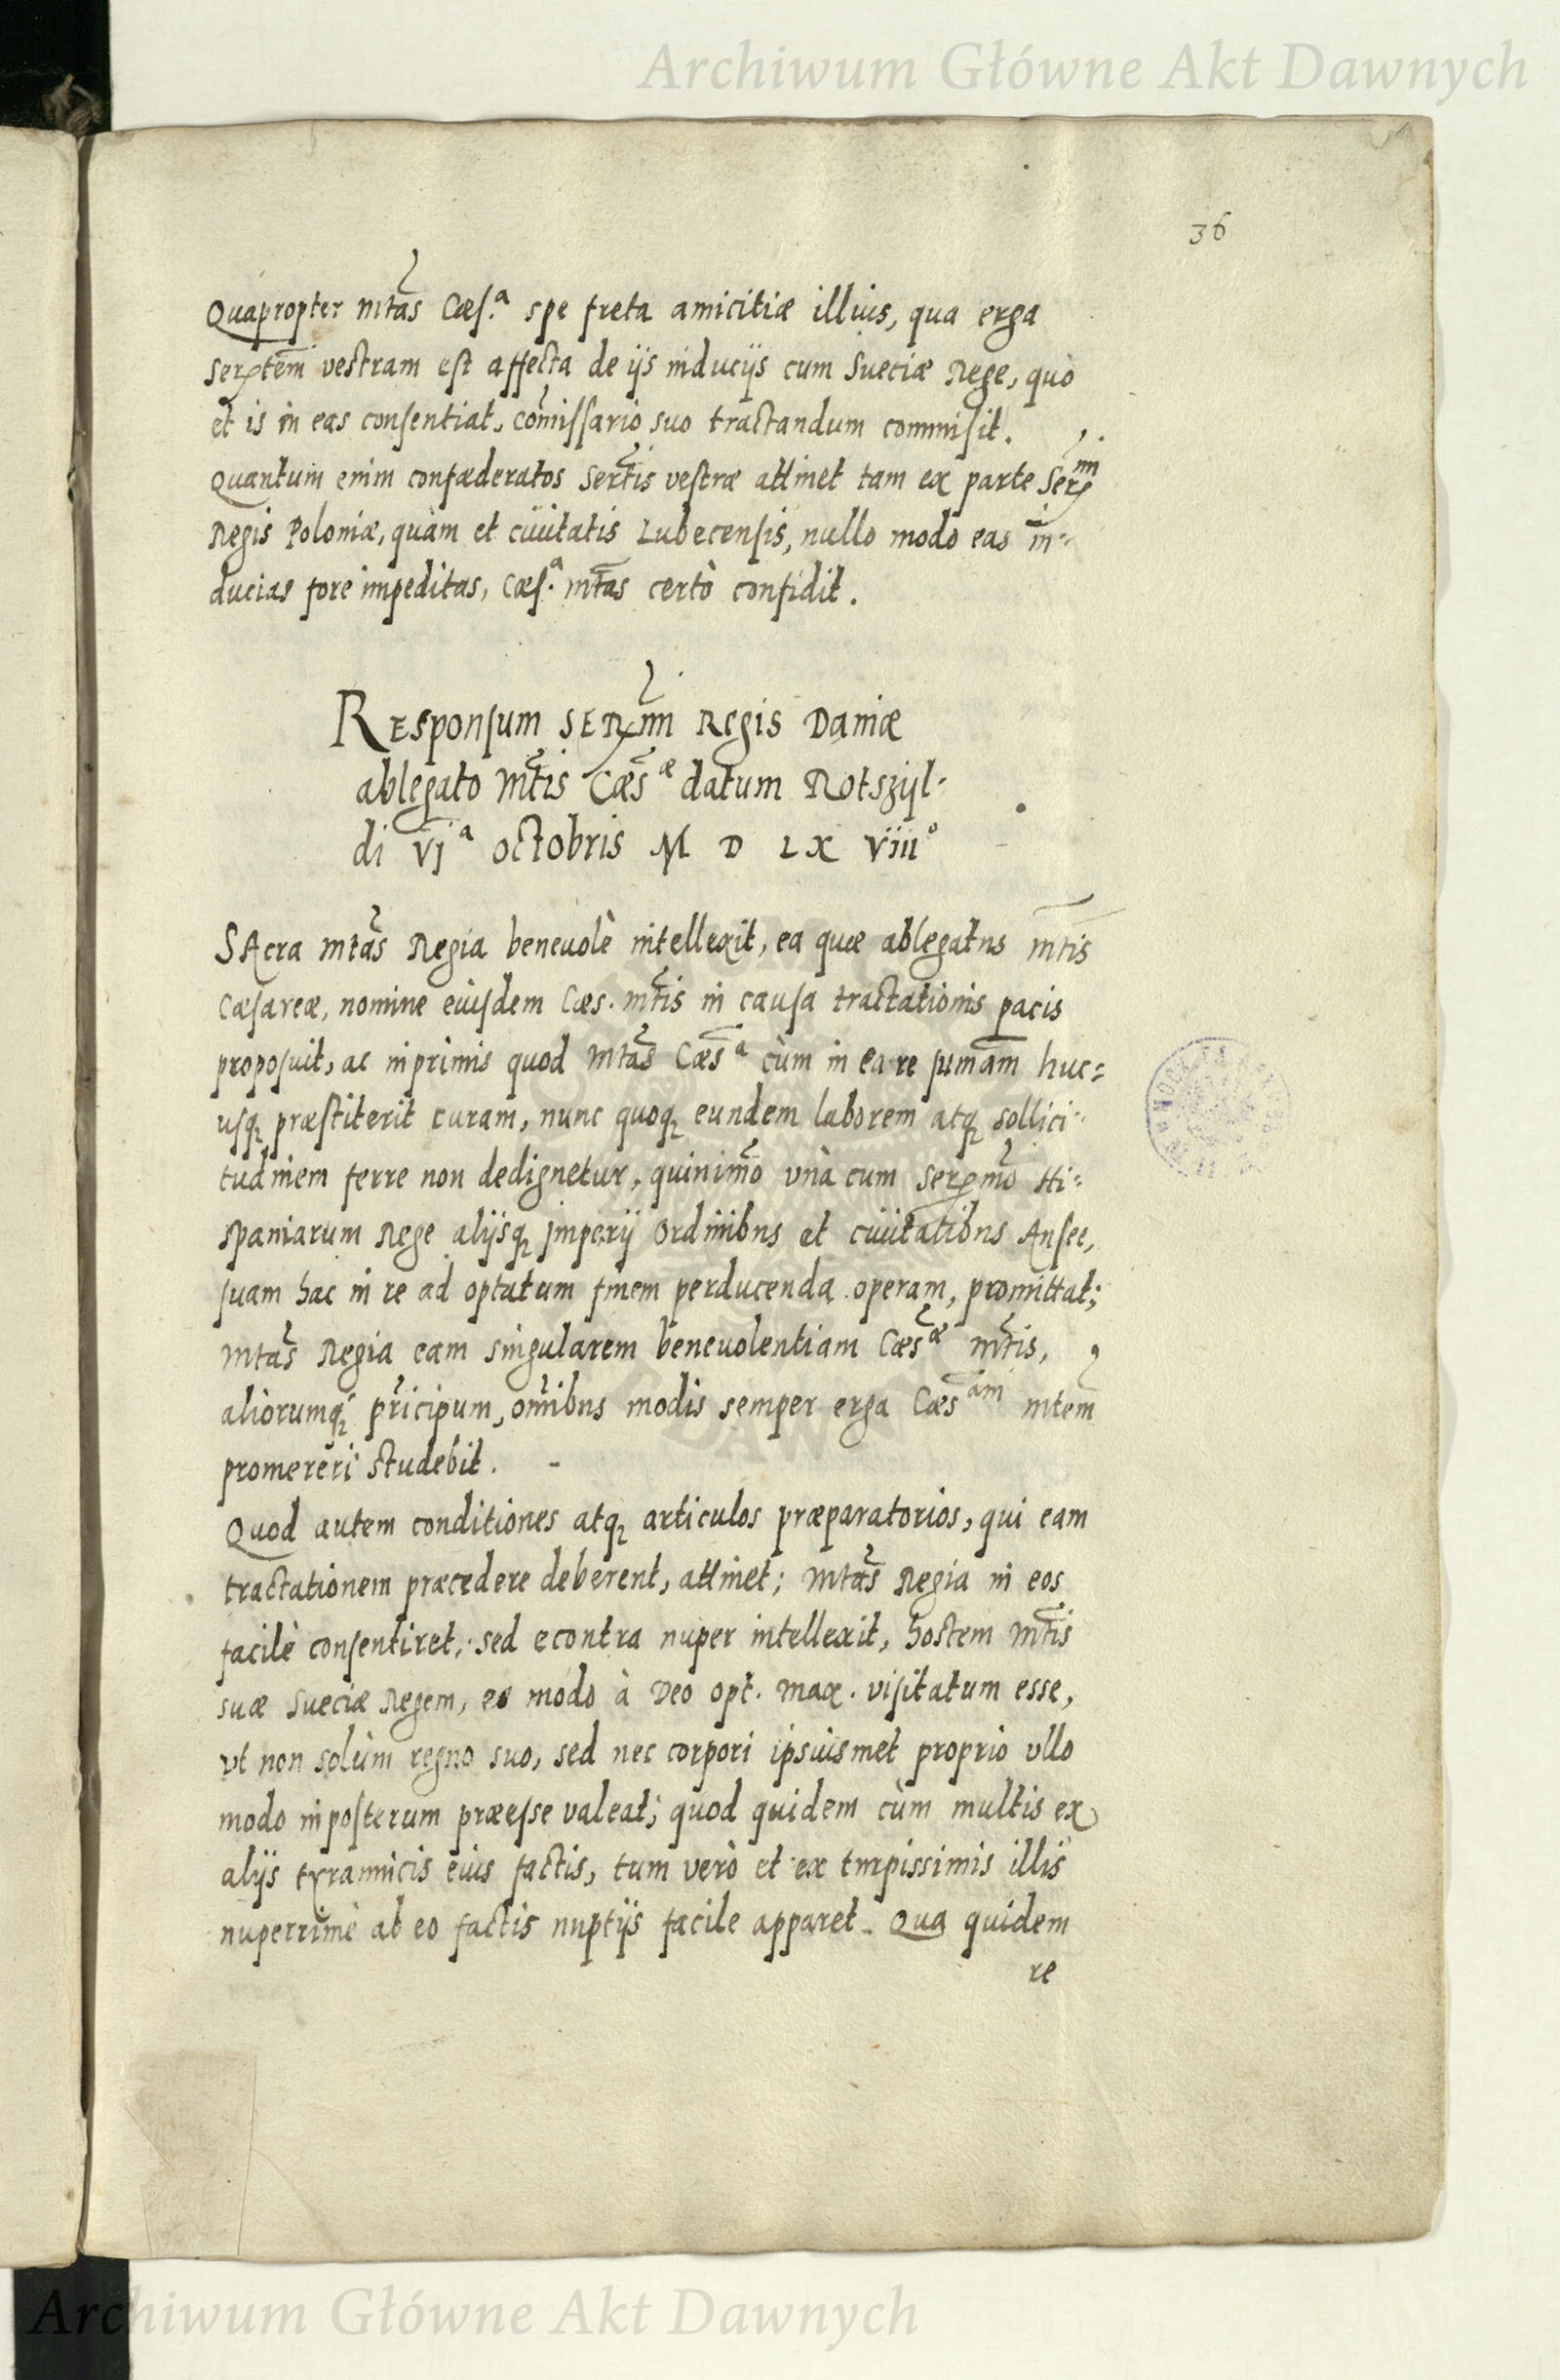 Archiwum Główne Akt Dawnych
36
Quapropter Mtas Cæs.ª spe freta amicitiæ illius, qua erga
Sertem vestram est affecta de ijs inducijs cum Sueciæ Rege, quò
et is in eas consentiat, comissario suo tractandum commisit.
Quantum enim confæderatos Sertis vestræ attinet tam ex parte Sermi
Regis Poloniæ, quàm et ciuitatis Lubecensis, nullo modo eas in-
ducias fore impeditas, Cæs.ª mtas certò confidit.
Responsum Sermi Regis Daniæ
ablegato Mtis Cæsæ datum Rotszijl-
di VJª octobris M D LX Viiiº
SAcra Mtas Regia beneuolè intellexit, ea quæ ablegatus Mtis
Cæsareæ, nomine eiusdem Cæs. Mtis in causa tractationis pacis
proposuit, ac inprimis quod Mtas Cæsª cùm in ea re sumam huc-
usq præstiterit curam, nunc quoq eundem laborem atq sollici-
tudinem ferre non dedignetur, quinimo vnà cum Sermo Hi-
spaniarum Rege alijsq Imperij Ordinibus et ciuitatibus Ansee,
suam hac in re ad optatum finem perducenda operam, promittat;
Mtas Regia eam singularem beneuolentiam Cæsæ Mtis,
aliorumq pricipum, omibus modis semper erga Cæsam mtem
promereri studebit.
Quod autem conditiones atq articulos præparatorios, qui eam
tractationem præcedere deberent, attinet; Mtas Regia in eos
facilè consentiret; sed econtra nuper intellexit, hostem Mtis
suæ Sueciæ Regem, eo modo à Deo opt. max. visitatum esse,
vt non solùm regno suo, sed nec corpori ipsiusmet proprio vllo
modo inposterum præesse valeat; quod quidem cùm multis ex
alijs tyrannicis eius factis, tum verò et ex turpissimis illis
nuperrimè ab eo factis nuptijs facile apparet. Qua quidem
re
Archiwum Główne Akt Dawnych